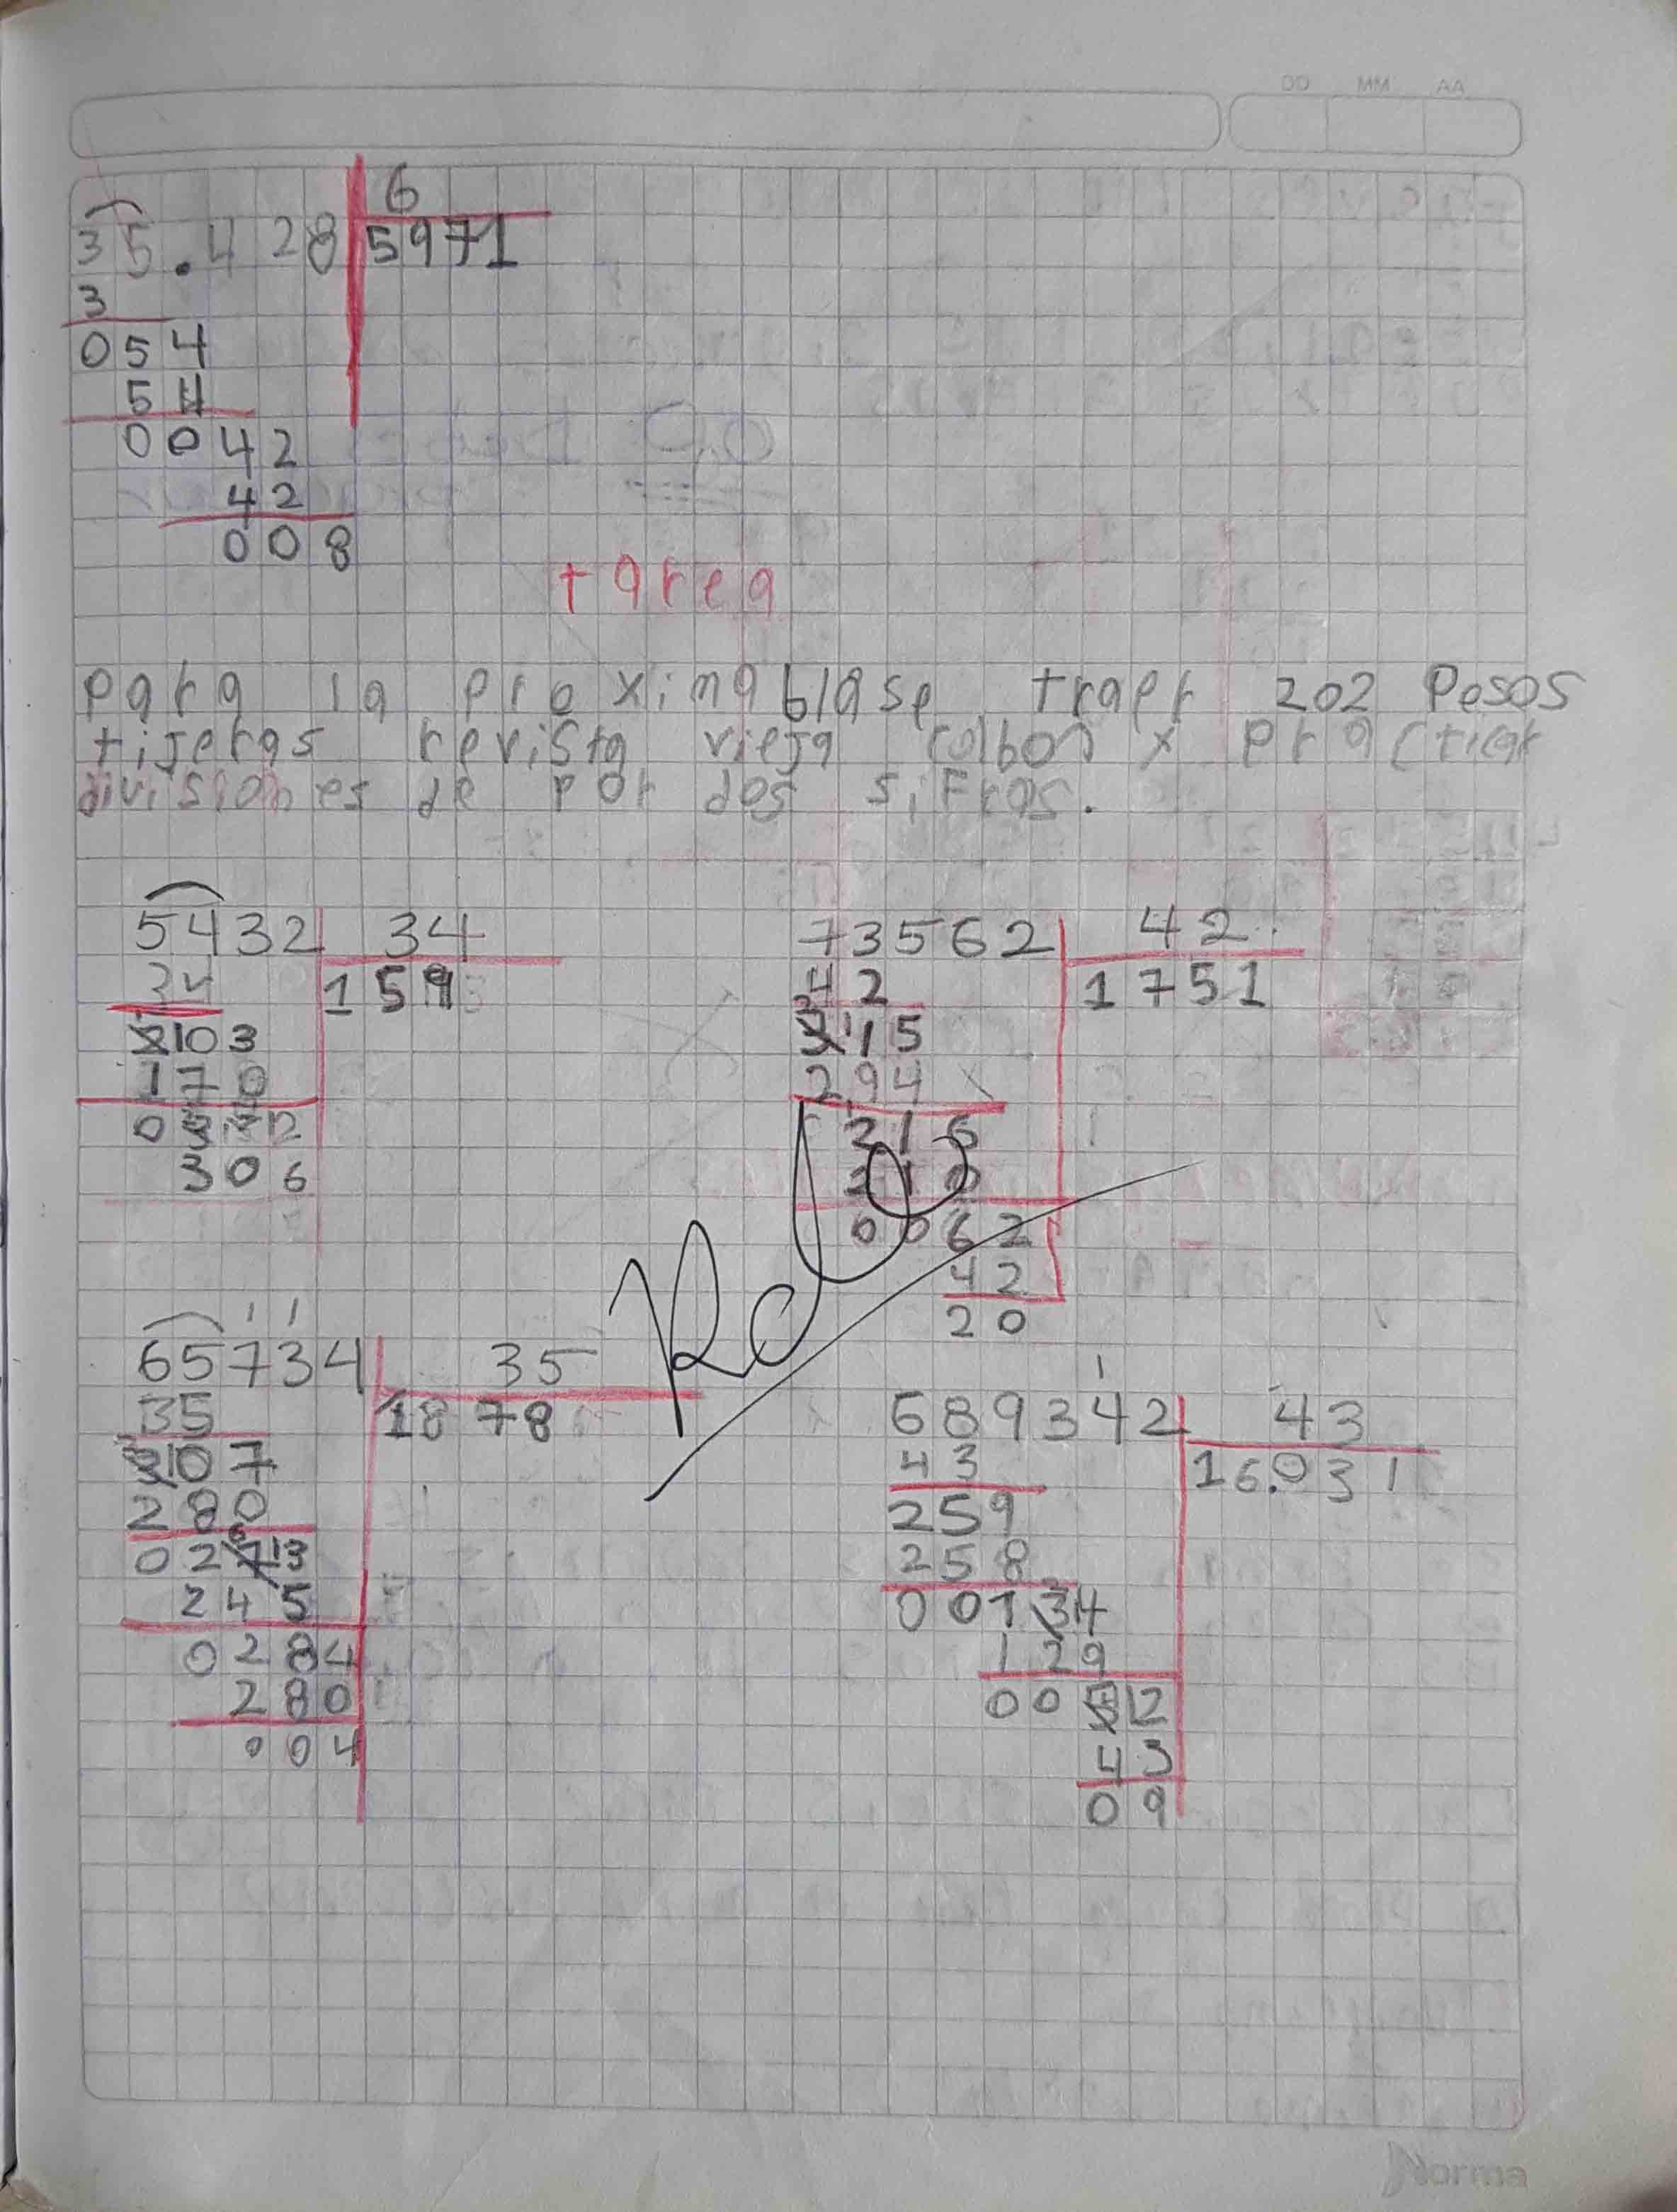 DD MM AA
35.428 6
5971
3
054
54
0042
42
008
tarea
para la proximablase traer 202 Pesos
tijeras revista vieja colbon x Practicar
divisiones de por dos sifras.
5432 34
34 159
2103
170
0332
306
73562 42
42 1751
315
294
216
210
0062
42
20
65734 35
35 1878
3107
280
02713
245
0284
280
004
689342 43
43 16.031
259
258
00134
129
00512
43
09
Norma